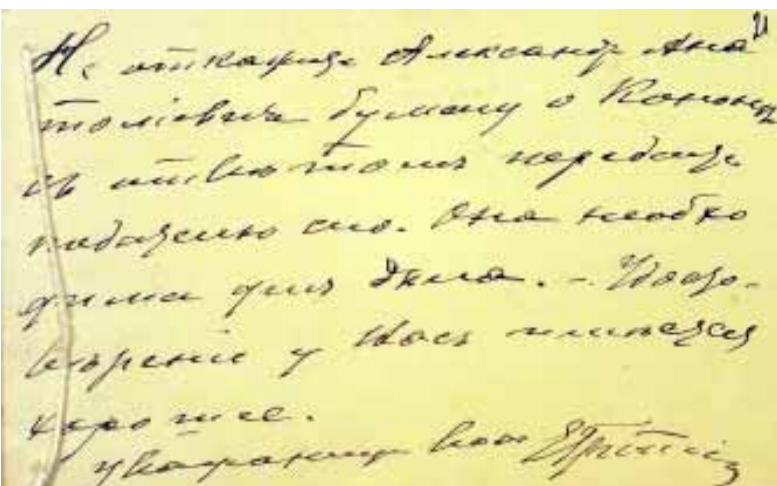 Не откажите Александр Ана
толіевичъ бумагу о Кононѣ
съ отвѣтомъ передать
подателю сего. Она необхо
дима для дѣла. – Удосто-
вѣреніе у Васъ имѣется
хорошее.
Уважающій Васъ